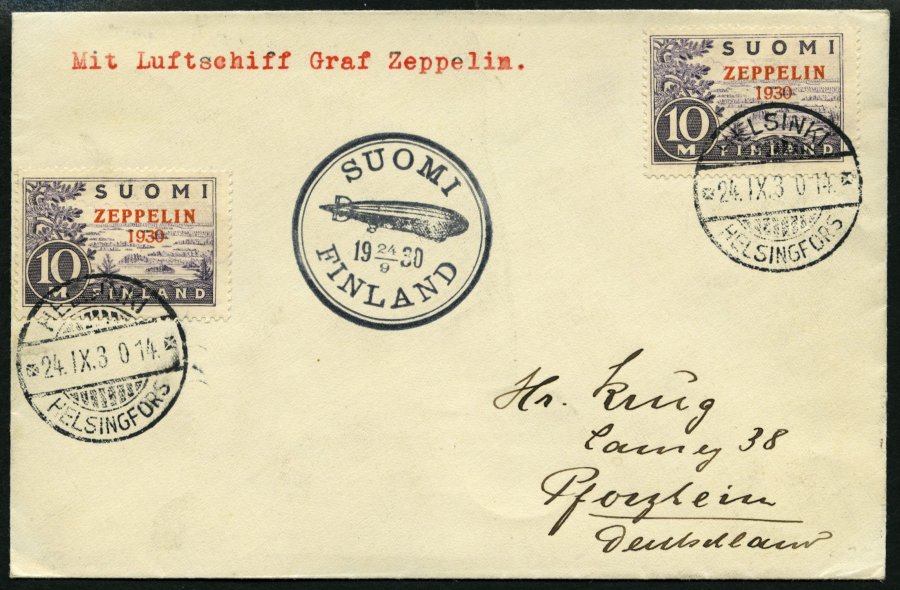 Mit Luftschiff Graf Zeppelin.
SUOMI
ZEPPELIN
1930
10 M
FINLAND
HELSINKI
24.IX.3 0 14.
HELSINGFORS
SUOMI
19 24/9 30
FINLAND
SUOMI
ZEPPELIN
1930
10 M
FINLAND
HELSINKI
24.IX.3 0 14.
HELSINGFORS
Hr. Krüg
38
Pforzheim
Deutschland